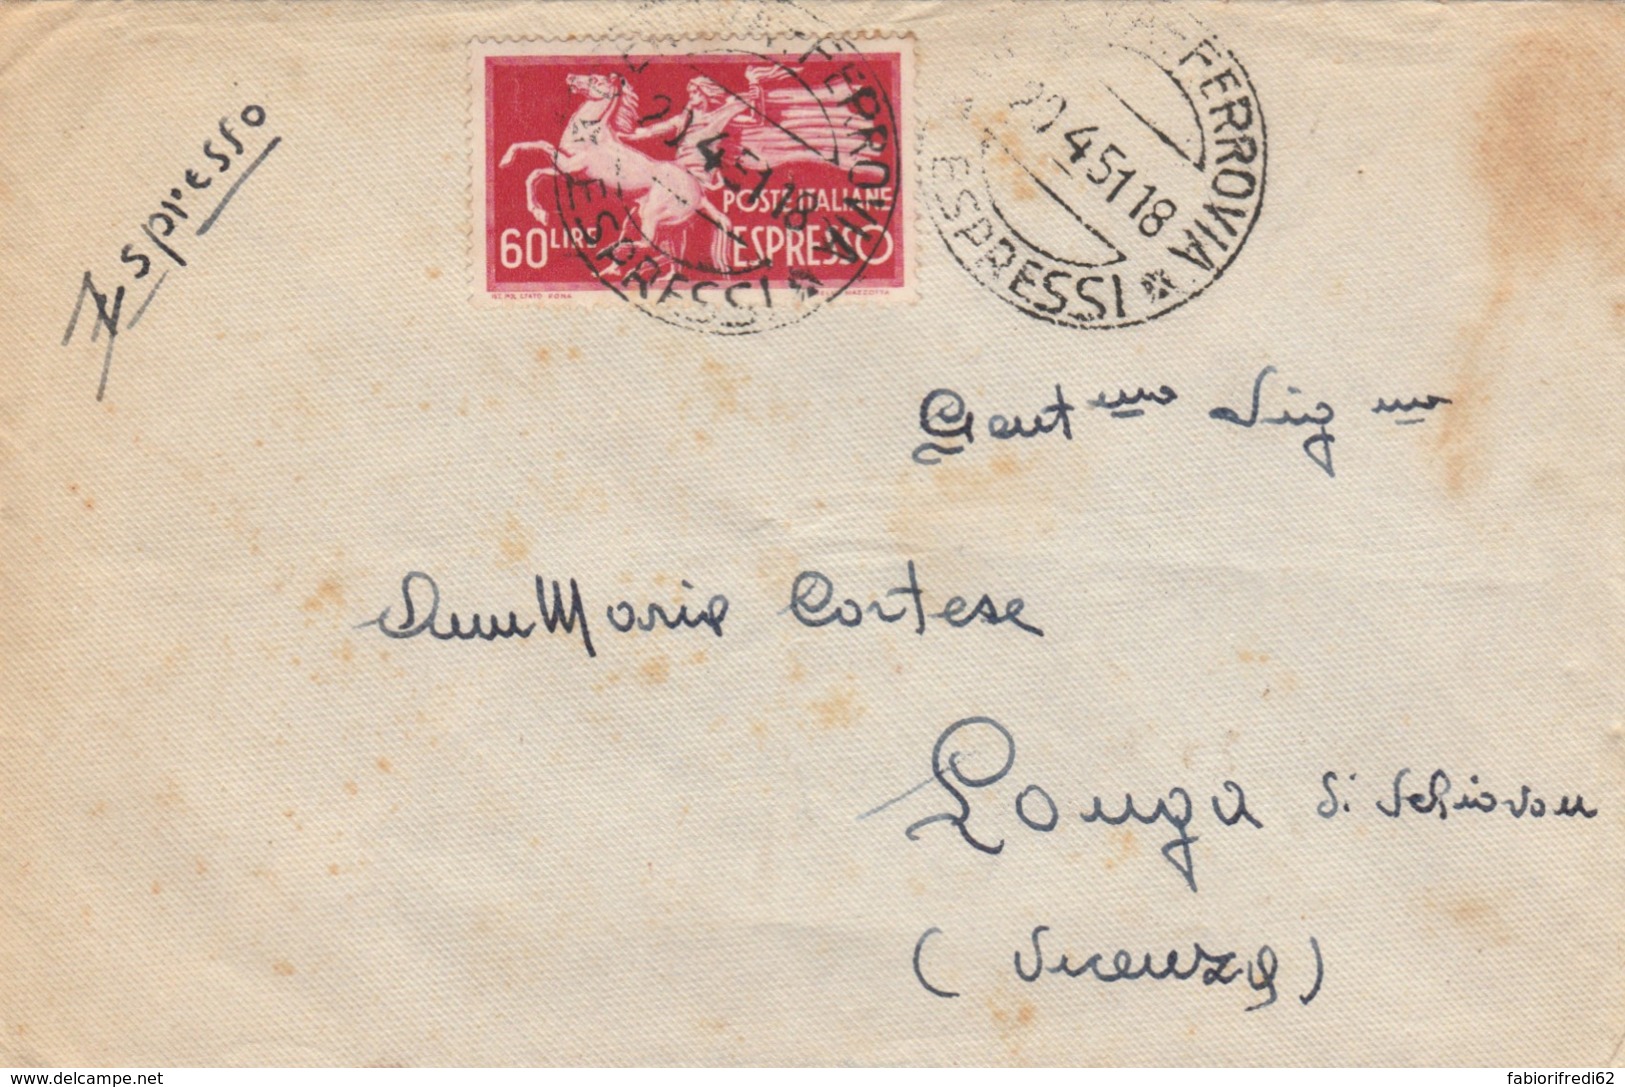 Espresso
POSTE ITALIANE
60 LIRE ESPRESSO
IST. POL. STATO ROMA MAZZOTTA
FERROVIA
ESPRESSI
20 4 51 18
FERROVIA
ESPRESSI
20 4 51 18
Gent ma Sig na
AnnMaria Cortese
Longa di Schiavon
(Vicenza)
www.delcampe.net
fabiorifredi62